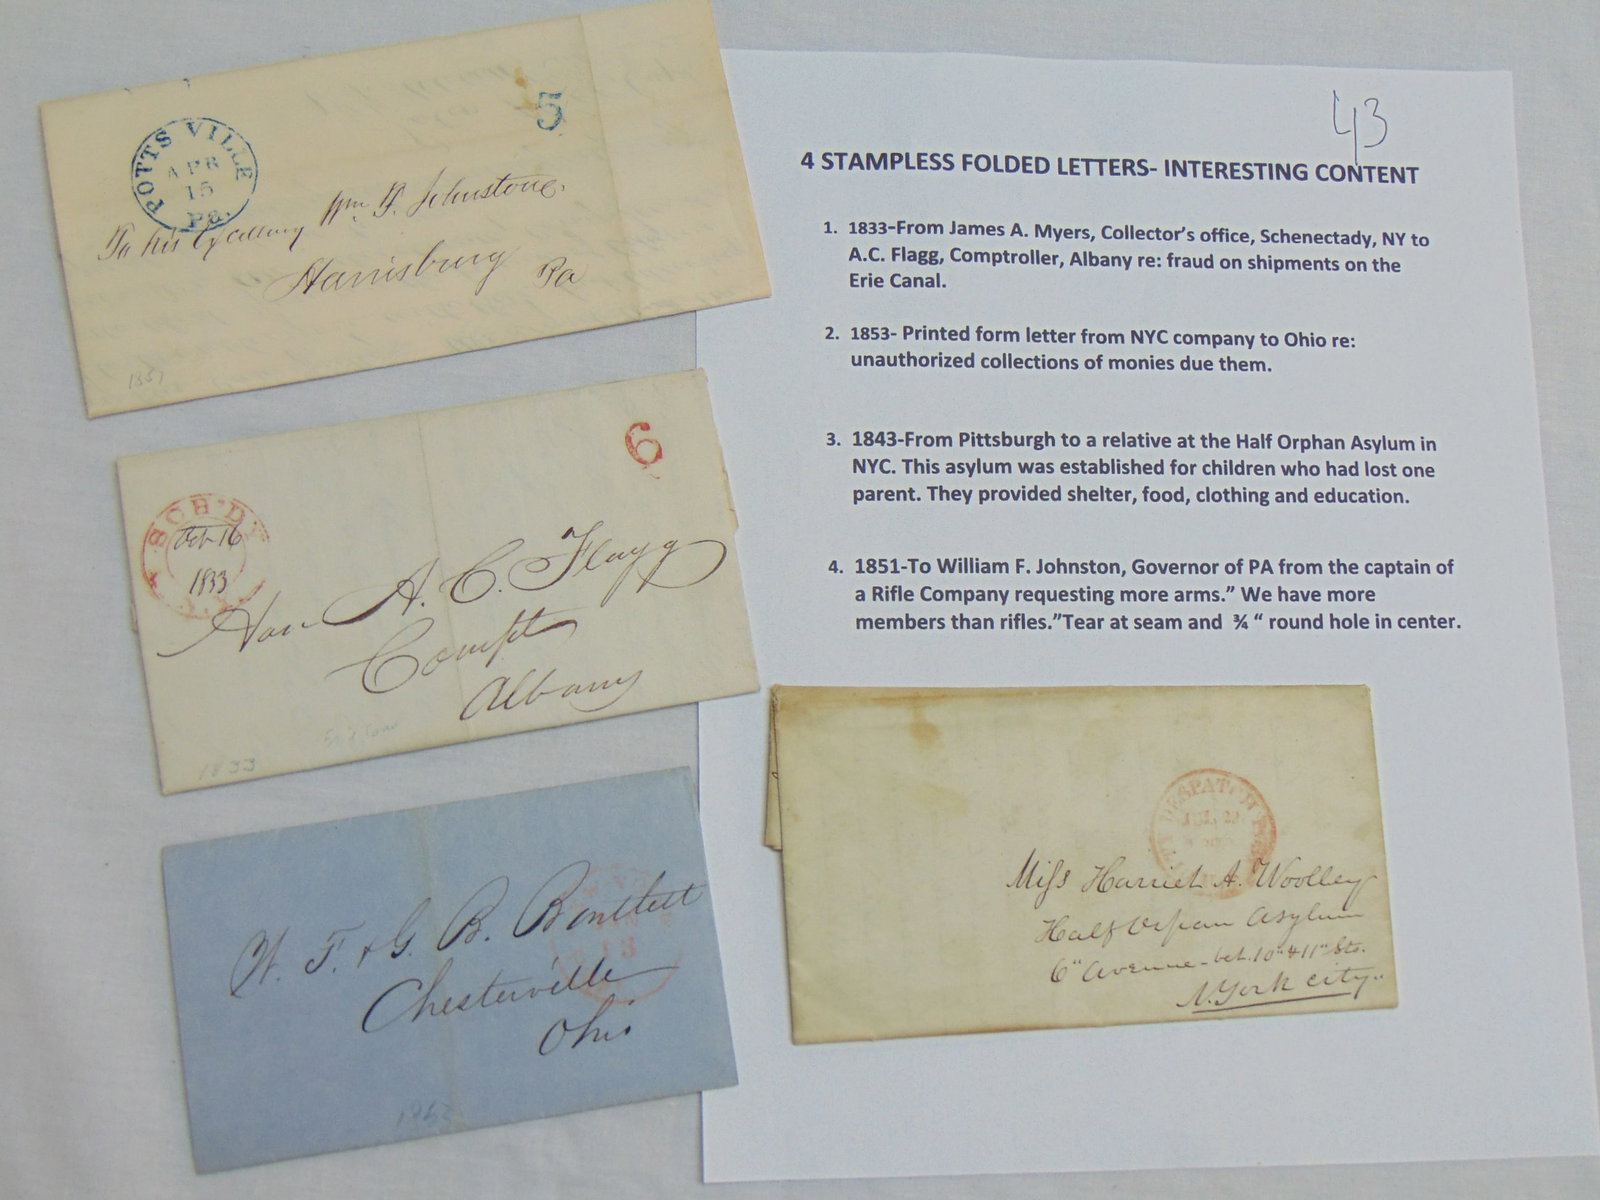 POTTSVILLE Pa.
APR
15
5
To his Excellency Wm. F. Johnstone.
Harrisburg
Pa
6
SCH'DY
Oct 16
1833
Hon A. C. Flagg
Compt
Albany
1833
W. F. & G. B. Bartlett
Chesterville
Ohio
13
43
4 STAMPLESS FOLDED LETTERS- INTERESTING CONTENT
1. 1833-From James A. Myers, Collector's office, Schenectady, NY to
A.C. Flagg, Comptroller, Albany re: fraud on shipments on the
Erie Canal.
2. 1853- Printed form letter from NYC company to Ohio re:
unauthorized collections of monies due them.
3. 1843-From Pittsburgh to a relative at the Half Orphan Asylum in
NYC. This asylum was established for children who had lost one
parent. They provided shelter, food, clothing and education.
4. 1851-To William F. Johnston, Governor of PA from the captain of
a Rifle Company requesting more arms." We have more
members than rifles."Tear at seam and ¾ " round hole in center.
DESPATCH
Miss Harriet A. Woolley
Half Orpan Asylum
6" Avenue - bet. 10" & 11" Sts.
N. York City.